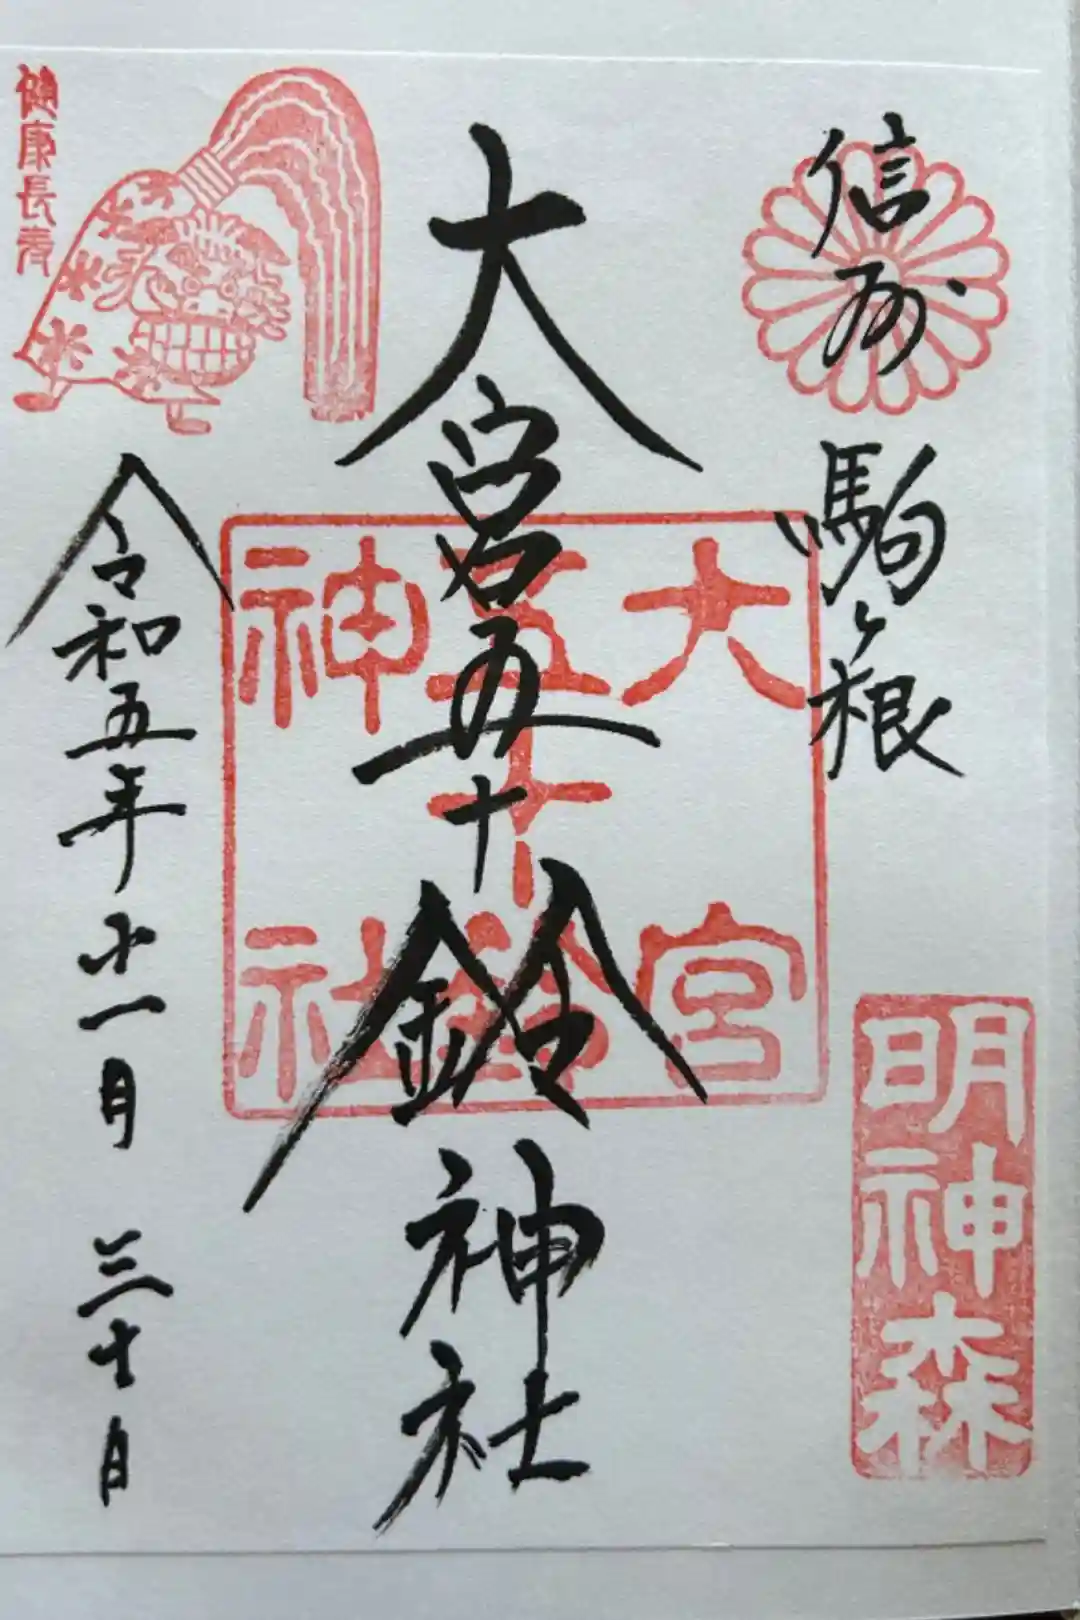 信州 駒ヶ根
明神森
大宮五十鈴神社
大宮
五十鈴
神社
健康長寿
令和五年十一月三十日